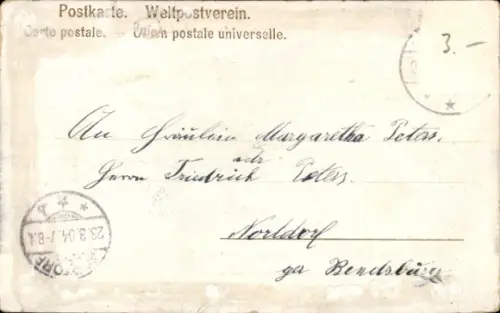 Postkarte. Weltpostverein.
Carte postale. — Union postale universelle.
3.-
An Fräulein Margaretha Peters.
oder
Herrn Friedrich Peters.
Nortdorf
23.3.04. 7-8
TORF